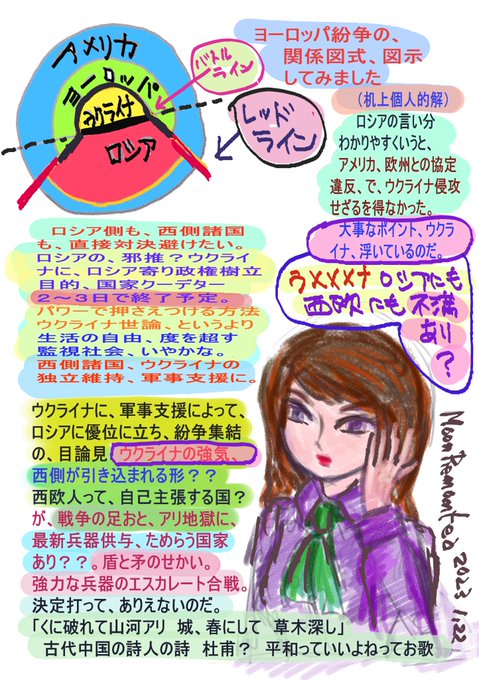 ヨーロッパ紛争の、
関係図式、図示
してみました
アメリカ
ヨーロッパ
ウクライナ
ロシア
バトル
ライン
レッド
ライン
(机上個人的解)
ロシアの言い分
わかりやすくいうと、
アメリカ、欧州との協定
違反、で、ウクライナ侵攻
せざるを得なかった。
大事なポイント、ウクラ
イナ、浮いているのだ。
ロシア側も、西側諸国
も、直接対決避けたい。
ロシアの、邪推?ウクライ
ナに、ロシア寄り政権樹立
目的、国家クーデター
2~3日で終了予定。
パワーで押さえつける方法
ウクライナ世論、というより
生活の自由、度を超す
監視社会、いやかな。
西側諸国、ウクライナの
独立維持、軍事支援に。
ウ×××ナ ロシアにも
西欧にも 不満
あり
?
ウクライナに、軍事支援によって、
ロシアに優位に立ち、紛争集結
の、目論見、ウクライナの強気、
西側が引き込まれる形??
西欧人って、自己主張する国?
が、戦争の足おと、アリ地獄に、
最新兵器供与、ためらう国家
あり??。盾と矛のせかい。
強力な兵器のエスカレート合戦。
決定打って、ありえないのだ。
「くに破れて山河アリ 城、春にして 草木深し」
古代中国の詩人の詩 杜甫? 平和っていいよねってお歌
2023 1.22